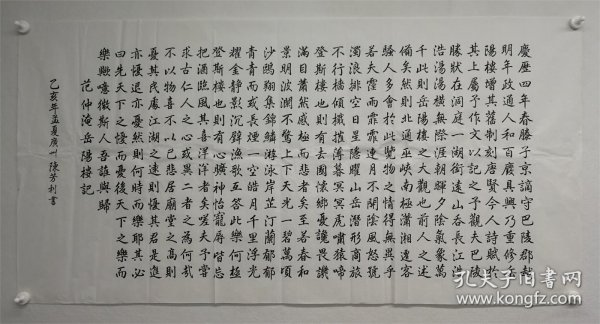 慶歷四年春滕子京謫守巴陵郡越
明年政通人和百廢具興乃重修岳
陽樓增其舊制刻唐賢今人詩賦於
其上屬予作文以記之予觀夫巴陵
勝狀在洞庭一湖銜遠山吞長江浩
浩湯湯橫無際涯朝暉夕陰氣象萬
千此則岳陽樓之大觀也前人之述
備矣然則北通巫峽南極瀟湘遷客
騷人多會於此覽物之情得無異乎
若夫霪雨霏霏連月不開陰風怒號
濁浪排空日星隱曜山岳潛形商旅
不行檣傾楫摧薄暮冥冥虎嘯猿啼
登斯樓也則有去國懷鄉憂讒畏譏
滿目蕭然感極而悲者矣至若春和
景明波瀾不驚上下天光一碧萬頃
沙鷗翔集錦鱗游泳岸芷汀蘭郁郁
青青而或長煙一空皓月千里浮光
耀金靜影沉璧漁歌互答此樂何極
登斯樓也則有心曠神怡寵辱皆忘
把酒臨風其喜洋洋者矣嗟夫予嘗
求古仁人之心或異二者之為何哉
不以物喜不以己悲居廟堂之高則
憂其民處江湖之遠則憂其君是進
亦憂退亦憂然則何時而樂耶其必
曰先天下之憂而憂後天下之樂而
樂歟噫微斯人吾誰與歸
范仲淹岳陽樓記
乙亥年孟夏廣州陳芳利書
孔夫子旧书网
www.kongfz.com